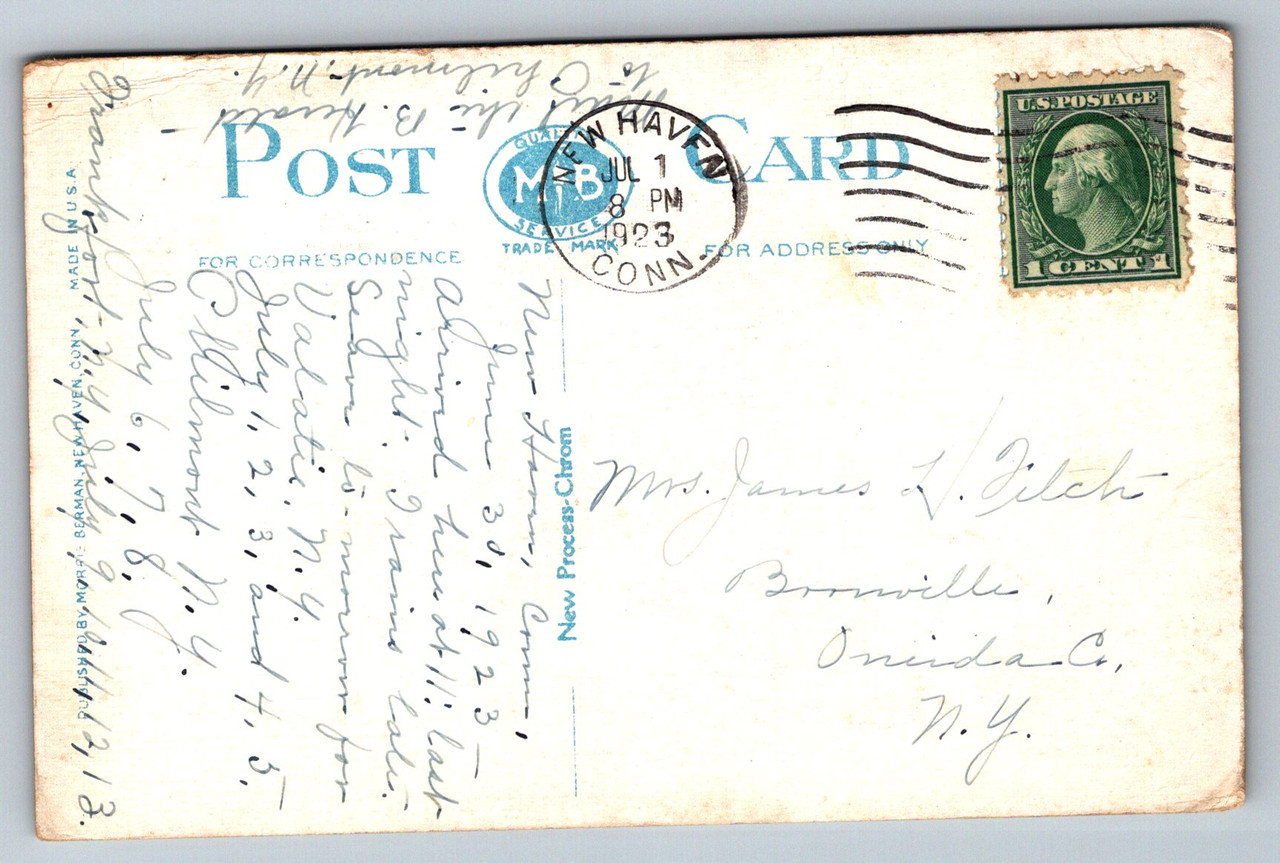 POST CARD
QUALITY
M.B
SERVICE
TRADE MARK
FOR CORRESPONDENCE
FOR ADDRESS ONLY
NEW HAVEN
JUL 1
8 PM
1923
CONN.
U.S. POSTAGE
1 CENT 1
New Haven, Conn.,
June 30, 1923
Arrived here at 11: last
night. Trains late.
Leave to-morrow for
Valatie, N.Y.
July 1, 2, 3, and 4, 5.
Chilmont N.Y.
July 6, 7, 8.
Frankfort, N.Y. July 9, 10, 11, 12, 13.
the B. Herald -
to Philmont, N.Y.
Mrs. James H. Fitch
Boonville,
Oneida Co,
N.Y.
New Process-Chrom
PUBLISHED BY MORRIS BERMAN, NEW HAVEN, CONN. MADE IN U.S.A